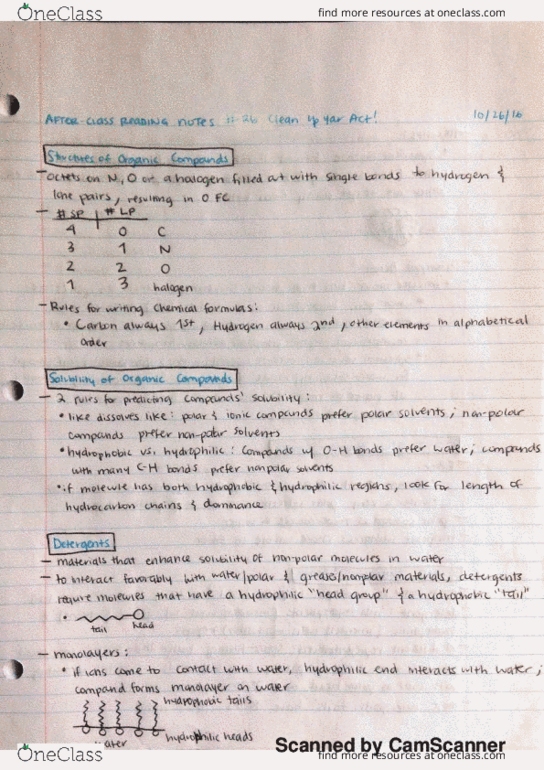 OneClass find more resources at oneclass.com
AFTER-CLASS READING NOTES 11-26 Clean Up Yar Act! 10/26/16
Structures of Organic Compounds
- Octets on N, O or a halogen filled out with single bonds to hydrogen &
lone pairs, resulting in 0 FC
- # SP # LP
4 0 C
3 1 N
2 2 O
1 3 halogen
- Rules for writing chemical formulas:
• Carbon always 1st, Hydrogen always 2nd, other elements in alphabetical
order
Solubility of Organic Compounds
- 2 rules for predicting compounds' solubility:
• like dissolves like: polar & ionic compounds prefer polar solvents; non-polar
compounds prefer non-polar solvents
• hydrophobic vs. hydrophilic: compounds w/ O-H bonds prefer water; compounds
with many C-H bonds prefer nonpolar solvents
• if molecule has both hydrophobic & hydrophilic regions, look for length of
hydrocarbon chains & dominance
Detergents
- materials that enhance solubility of non-polar molecules in water
- to interact favorably with water/polar & grease/nonpolar materials, detergents
require molecules that have a hydrophilic "head group" & a hydrophobic "tail"
• tail head
- monolayers:
• if ions come to contact with water, hydrophilic end interacts with water;
compound forms monolayer on water
hydrophobic tails
hydrophilic heads
water
Scanned by CamScanner
OneClass find more resources at oneclass.com